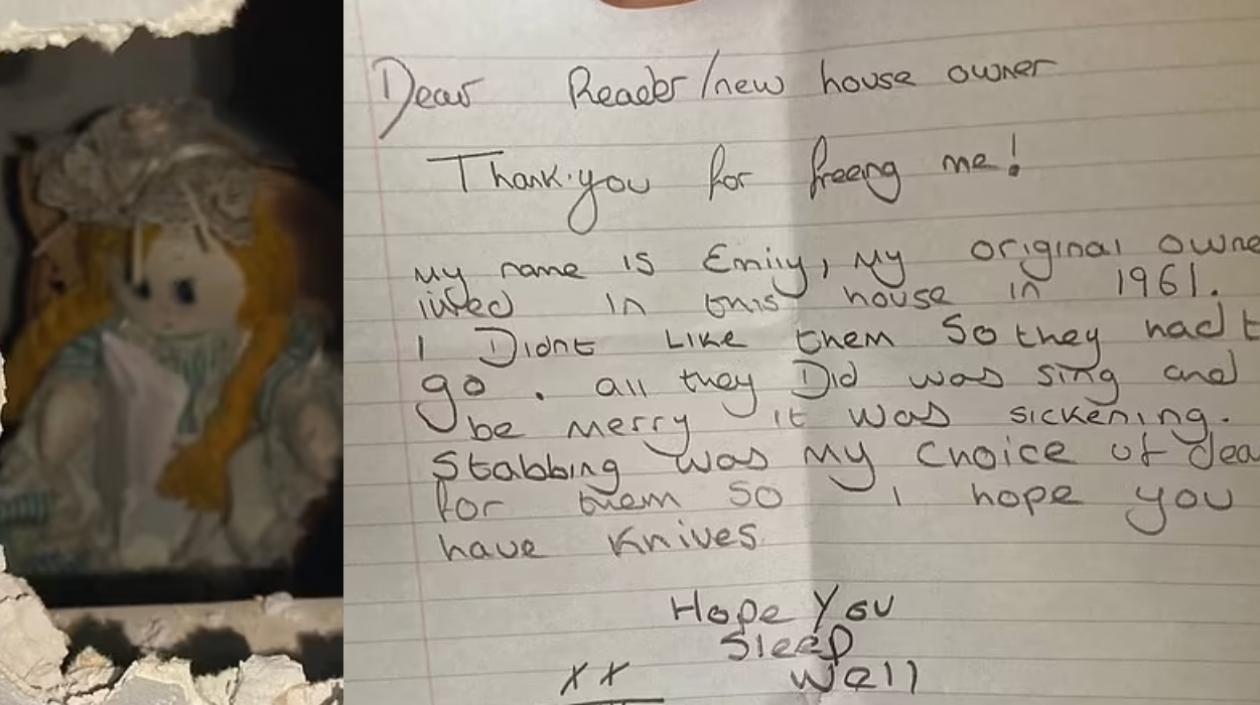 Dear Reader/new house owner
Thank you for freeing me!
My name is Emily, My original owne
lived in this house in 1961.
I Didnt Like them So they had t
go. all they Did was sing and
be merry it was sickening.
Stabbing was my choice of dea
for them so I hope you
have Knives.
Hope You
Sleep
Well
XX